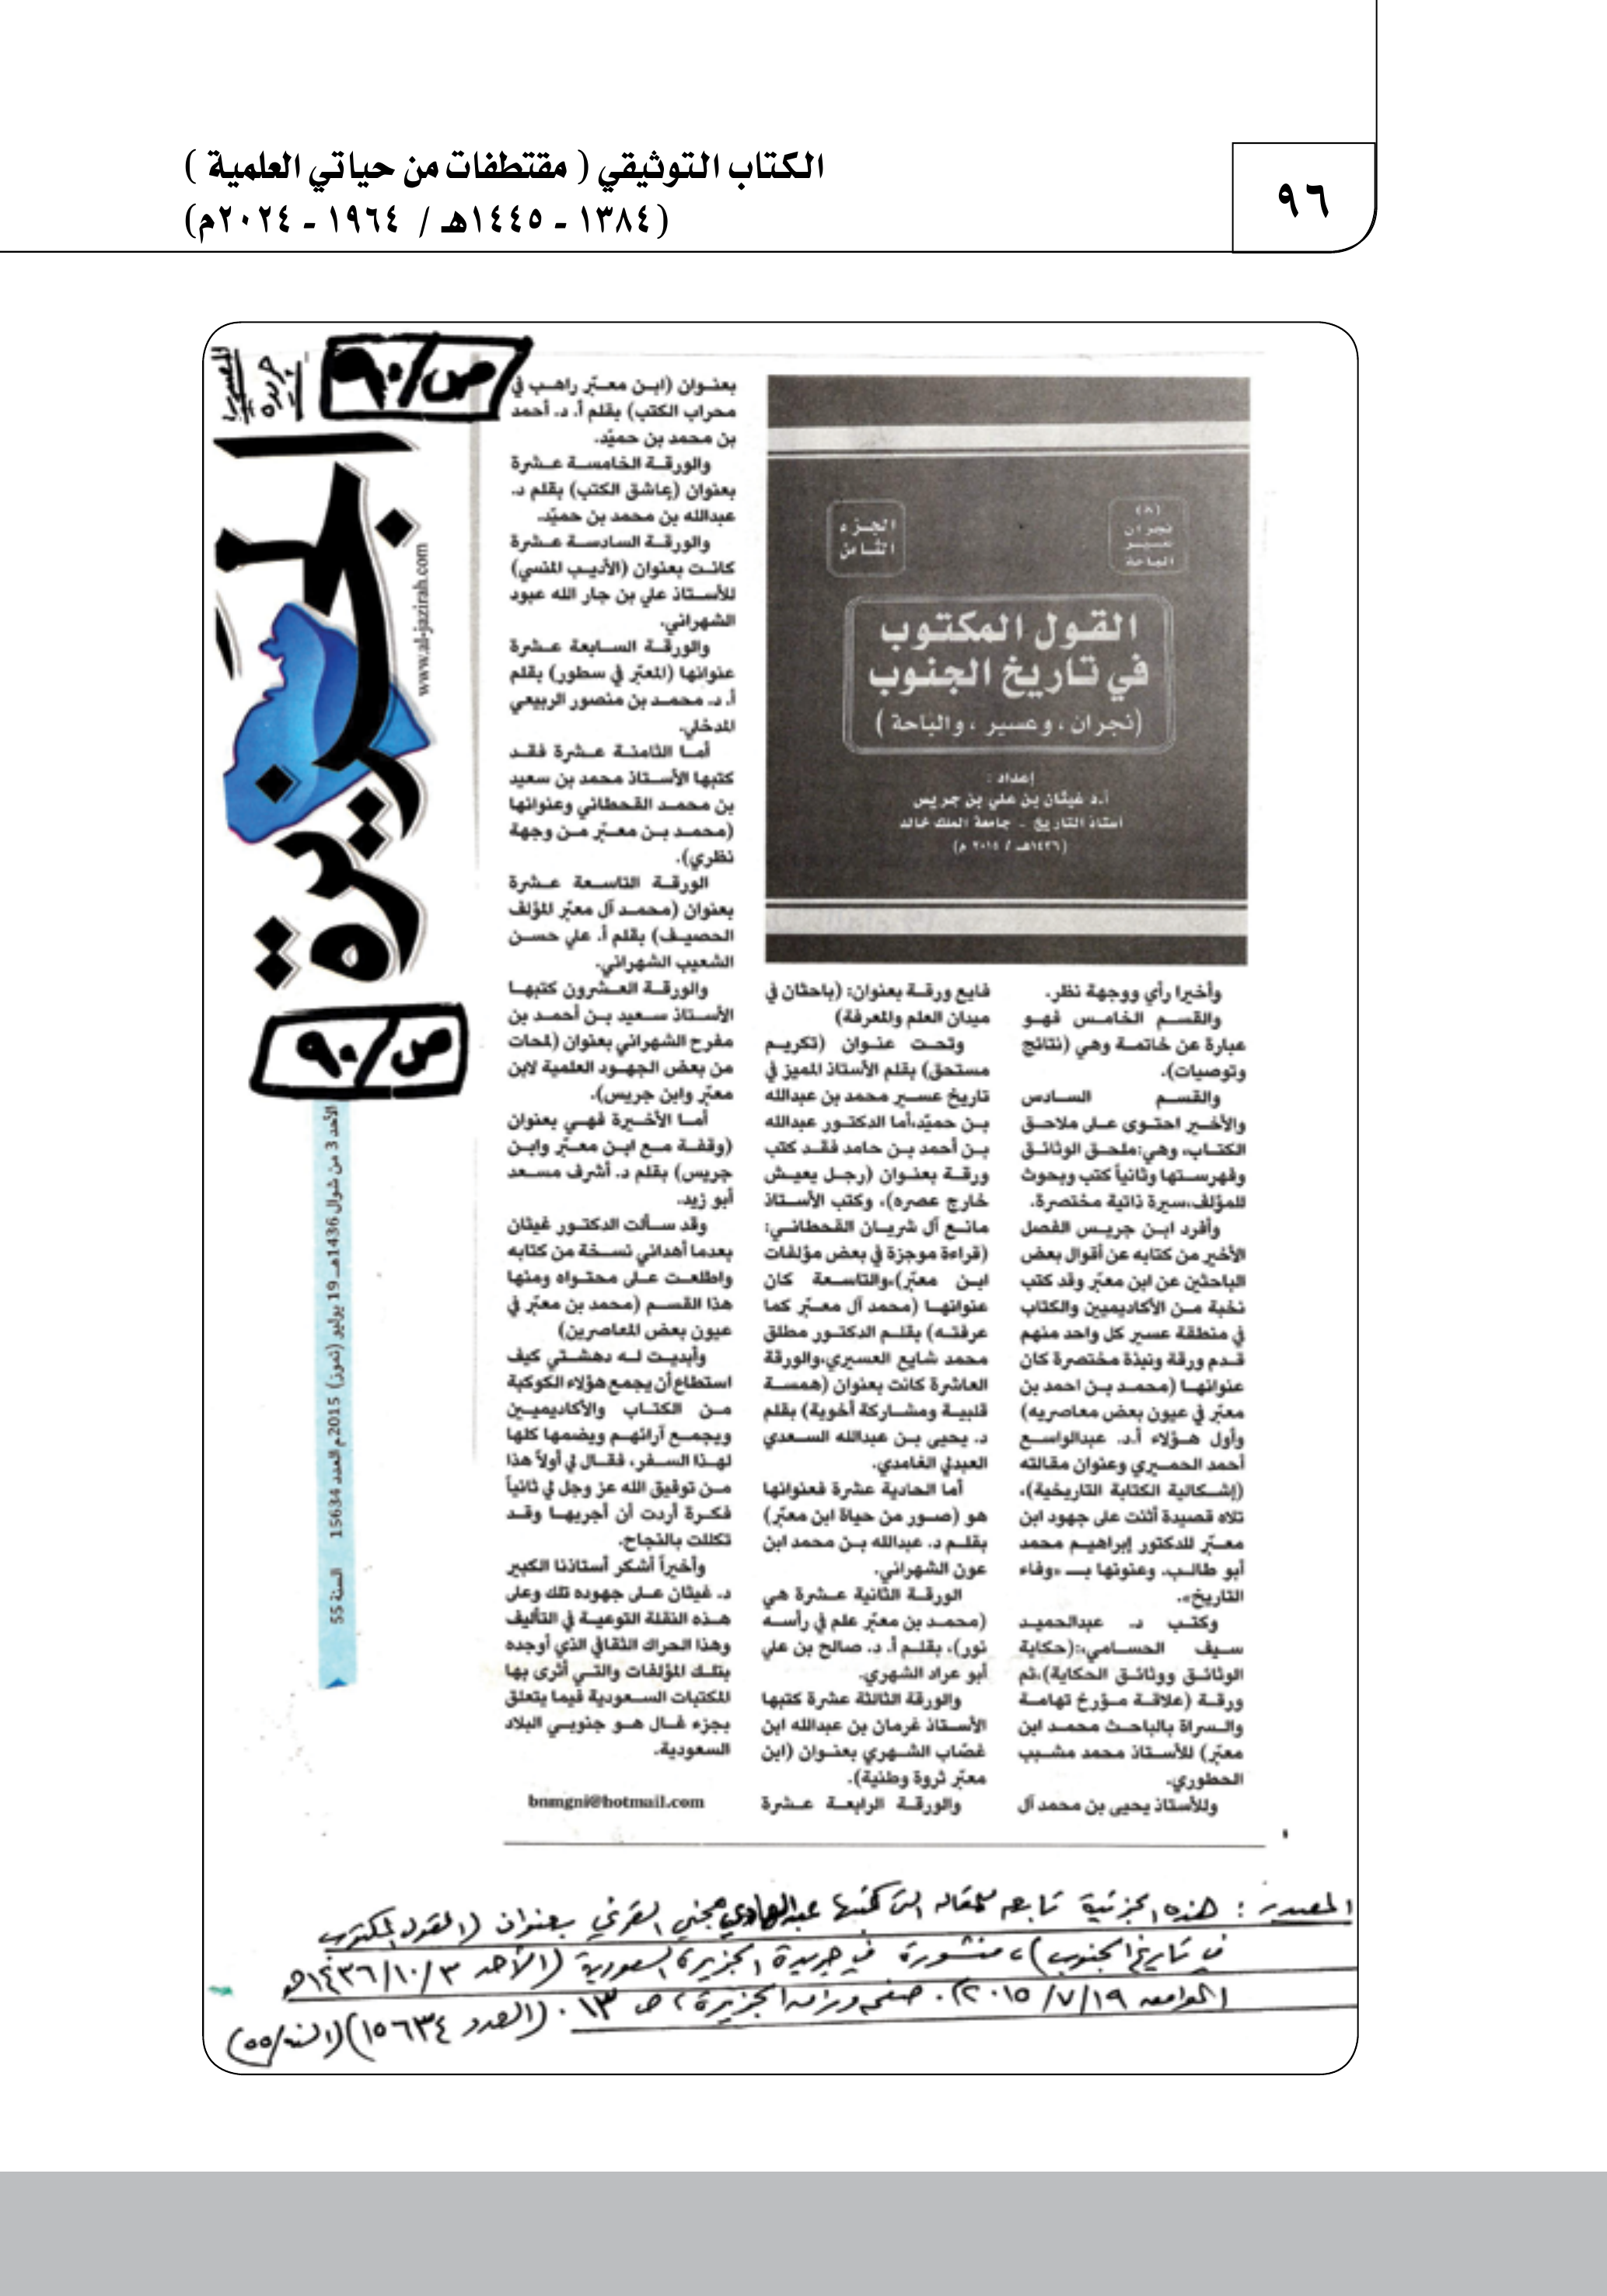 ٩٦
الكتاب التوثيقي ( مقتطفات من حياتي العلمية )
(١٣٨٤ - ١٤٤٥هـ / ١٩٦٤ - ٢٠٢٤م)
ص/٩٠
جريدة
الجزيرة
www.al-jazirah.com
ص/٩٠
الأحد 3 من شوال 1436هـ 19 يوليو (تموز) 2015م العدد 15634 السنة 55
(٨)
نجران
عسير
الباحة
الجزء
الثامن
القول المكتوب
في تاريخ الجنوب
(نجران ، وعسير ، والباحة )
إعداد :
أ.د غيثان بن علي بن جريس
أستاذ التاريخ - جامعة الملك خالد
(١٤٣٦هـ / ٢٠١٥ م)
وأخيرا رأي ووجهة نظر.
والقسم الخامس فهو
عبارة عن خاتمة وهي (نتائج
وتوصيات).
والقسم السادس
والأخير احتوى على ملاحق
الكتاب، وهي:ملحق الوثائق
وفهرستها وثانياً كتب وبحوث
للمؤلف،سيرة ذاتية مختصرة.
وأفرد ابن جريس الفصل
الأخير من كتابه عن أقوال بعض
الباحثين عن ابن معبّر وقد كتب
نخبة من الأكاديميين والكتاب
في منطقة عسير كل واحد منهم
قدم ورقة ونبذة مختصرة كان
عنوانها (محمد بن احمد بن
معبّر في عيون بعض معاصريه)
وأول هؤلاء أ.د. عبدالواسع
أحمد الحميري وعنوان مقالته
(إشكالية الكتابة التاريخية)،
تلاه قصيدة أثنت على جهود ابن
معبّر للدكتور إبراهيم محمد
أبو طالب. وعنونها بـ «وفاء
التاريخ».
وكتب د. عبدالحميد
سيف الحسامي،:(حكاية
الوثائق ووثائق الحكاية)،ثم
ورقة (علاقة مؤرخ تهامة
والسراة بالباحث محمد ابن
معبّر) للأستاذ محمد مشبب
الحطوري.
وللأستاذ يحيى بن محمد آل
فايع ورقة بعنوان: (باحثان في
ميدان العلم والمعرفة)
وتحت عنوان (تكريم
مستحق) بقلم الأستاذ المميز في
تاريخ عسير محمد بن عبدالله
بن حميّد،أما الدكتور عبدالله
بن أحمد بن حامد فقد كتب
ورقة بعنوان (رجل يعيش
خارج عصره)، وكتب الأستاذ
مانع آل شريان القحطاني:
(قراءة موجزة في بعض مؤلفات
ابن معبّر)،والتاسعة كان
عنوانها (محمد آل معبّر كما
عرفته) بقلم الدكتور مطلق
محمد شايع العسيري،والورقة
العاشرة كانت بعنوان (همسة
قلبية ومشاركة أخوية) بقلم
د. يحيى بن عبدالله السعدي
العبدلي الغامدي.
أما الحادية عشرة فعنوانها
هو (صور من حياة ابن معبّر)
بقلم د. عبدالله بن محمد ابن
عون الشهراني.
الورقة الثانية عشرة هي
(محمد بن معبّر علم في رأسه
نور)، بقلم أ. د. صالح بن علي
أبو عراد الشهري.
والورقة الثالثة عشرة كتبها
الأستاذ غرمان بن عبدالله ابن
غصّاب الشهري بعنوان (ابن
معبّر ثروة وطنية).
والورقة الرابعة عشرة
بعنوان (ابن معبّر راهب في
محراب الكتب) بقلم أ. د. أحمد
بن محمد بن حميّد.
والورقة الخامسة عشرة
بعنوان (عاشق الكتب) بقلم د.
عبدالله بن محمد بن حميّد.
والورقة السادسة عشرة
كانت بعنوان (الأديب المنسي)
للأستاذ علي بن جار الله عبود
الشهراني.
والورقة السابعة عشرة
عنوانها (المعبّر في سطور) بقلم
أ. د. محمد بن منصور الربيعي
المدخلي.
أما الثامنة عشرة فقد
كتبها الأستاذ محمد بن سعيد
بن محمد القحطاني وعنوانها
(محمد بن معبّر من وجهة
نظري).
الورقة التاسعة عشرة
بعنوان (محمد آل معبّر المؤلف
الحصيف) بقلم أ. علي حسن
الشعيب الشهراني.
والورقة العشرون كتبها
الأستاذ سعيد بن أحمد بن
مفرح الشهراني بعنوان (لمحات
من بعض الجهود العلمية لابن
معبّر وابن جريس).
أما الأخيرة فهي بعنوان
(وقفة مع ابن معبّر وابن
جريس) بقلم د. أشرف مسعد
أبو زيد.
وقد سألت الدكتور غيثان
بعدما أهداني نسخة من كتابه
واطلعت على محتواه ومنها
هذا القسم (محمد بن معبّر في
عيون بعض المعاصرين)
وأبديت له دهشتي كيف
استطاع أن يجمع هؤلاء الكوكبة
من الكتاب والأكاديميين
ويجمع آرائهم ويضمها كلها
لهذا السفر، فقال لي أولاً هذا
من توفيق الله عز وجل لي ثانياً
فكرة أردت أن أجريها وقد
تكللت بالنجاح.
وأخيراً أشكر أستاذنا الكبير
د. غيثان على جهوده تلك وعلى
هذه النقلة النوعية في التأليف
وهذا الحراك الثقافي الذي أوجده
بتلك المؤلفات والتي أثرى بها
المكتبات السعودية فيما يتعلق
بجزء غال هو جنوبي البلاد
السعودية.
bnmgni@hotmail.com
المصدر : هذه الجزئية تابعه للمقاله التي كتبها عبدالهادي مجني القرني بعنوان (القول المكتوب
في تاريخ الجنوب)، منشورة في جريدة الجزيرة السعودية (الأحد ١٤٣٦/١٠/٣هـ
الموافق ٢٠١٥/٧/١٩). صفحه وراق الجزيرة، ص ١٣. (العدد ١٥٦٣٤)(السنة/٥٥)